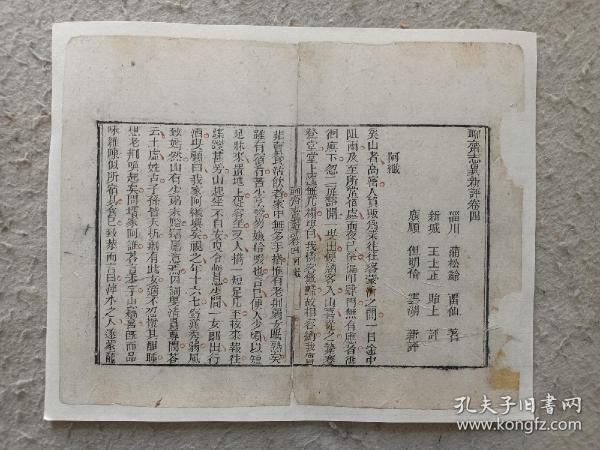 聊齋志異新評卷四
淄川 蒲松齡 留仙 著
新城 王士正 貽上 評
廣順 但明倫 雲湖 新評
阿纖
奚山者高密人貿販為業往往客蒙沂之間一日途中
阻雨及至所常宿處而夜已深徧叩肆門無有應者徘
徊廡下忽二扉豁開一叟出便納客入山喜從之縶蹇
登堂堂上迄無几榻叟曰我憐客無歸故相容納我實
非賣食沽飲者家中無多手指惟有老荊弱女眠熟矣
雖有宿肴苦少烹鬵勿嫌冷啜也言已便入少頃以短
足牀來置地上促客坐又入攜一短足几至拔來報往
蹀躞甚勞山起坐不自安曳令暫息少間一女郎出行
酒叟顧曰我家阿纖興矣視之年十六七窈窕秀弱風
致嫣然山有少弟未婚竊屬意焉因詢叟清貫尊閥答
云士虛姓古子孫皆夭折剩有此女適不忍攪其酣睡
想老荊喚起矣問壻家阿誰答言未字山竊喜既而品
味雜陳似所宿具食已致恭而言曰萍水之人遂蒙寵
孔夫子旧書网
www.kongfz.com